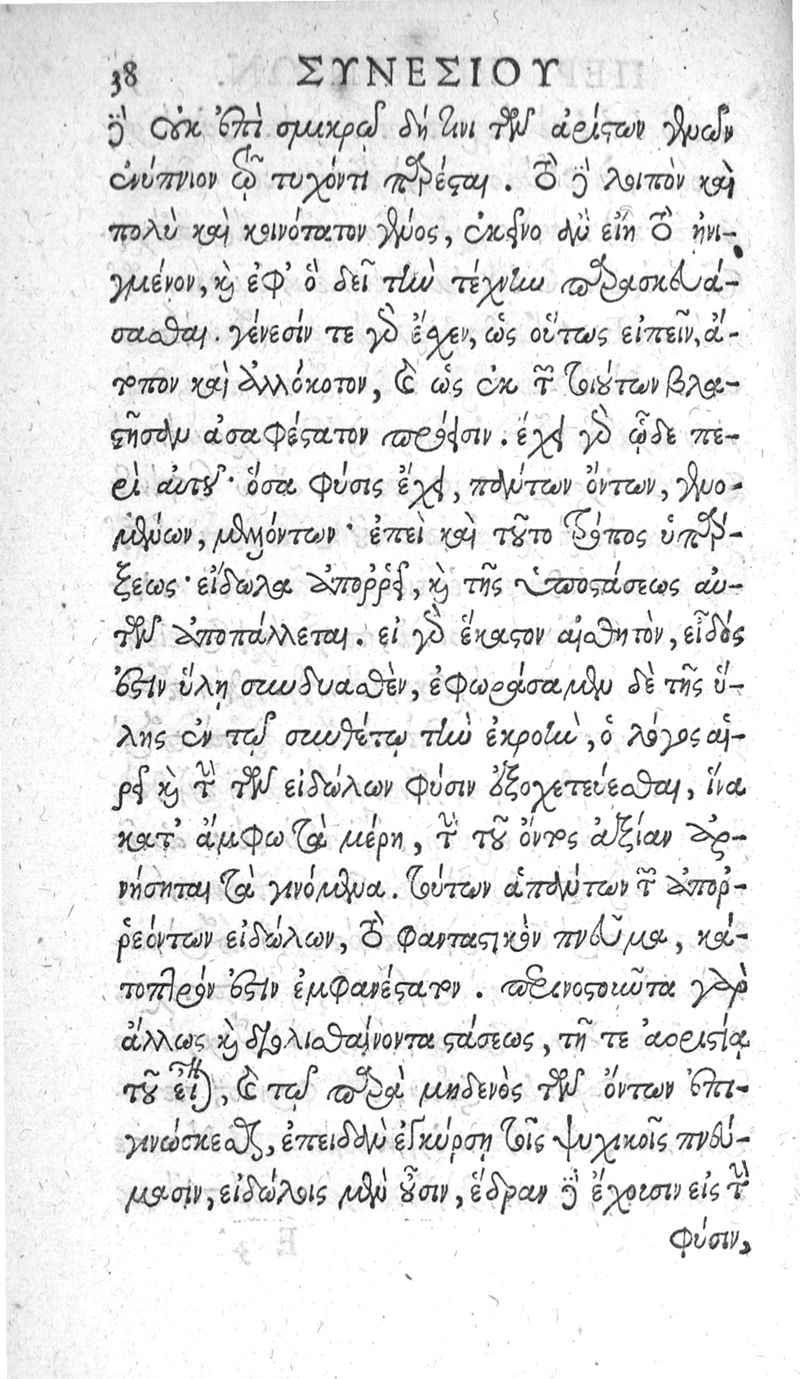 38 ΣΥΝΕΣΙΟΥ
δὲ οὐκ ἐπὶ σμικρῷ δή τινι τῶν ἀρίστων γενῶν
ἐνύπνιον τῷ τυχόντι παρέσται. τὸ δὲ λοιπὸν καὶ
πολὺ καὶ κοινότατον γένος, ἐκεῖνο ἂν εἴη τὸ ἠνι-
γμένον, καὶ ἐφ' ὃ δεῖ τὴν τέχνην παρασκευά-
σασθαι. γένεσίν τε γὰρ ἔσχεν, ὡς οὕτως εἰπεῖν, ἄ-
τοπον καὶ ἀλλόκοτον, καὶ ὡς ἐκ τῶν τοιούτων βλα-
στῆσαν ἀσαφέστατον πρόεισιν. ἔχει γὰρ ὧδε πε-
ρὶ αὐτοῦ· ὅσα φύσις ἔχει, πάντων ὄντων, γενο-
μένων, μελλόντων· ἐπεὶ καὶ τοῦτο τρόπος ὑπάρ-
ξεως· εἴδωλα ἀπορρεῖ, καὶ τῆς ὑποστάσεως αὐ-
τῶν ἀποπάλλεται. εἰ γὰρ ἕκαστον αἰσθητὸν, εἶδός
ἐστιν ὕλῃ συνδυασθὲν, ἐφωράσαμεν δὲ τῆς ὕ-
λης ἐν τῷ συνθέτῳ τὴν ἐκροὴν, ὁ λόγος αἱ-
ρεῖ καὶ τὴν τῶν εἰδώλων φύσιν ἐξοχετεύεσθαι, ἵνα
κατ' ἄμφω τὰ μέρη, τὴν τοῦ ὄντος ἀξίαν ἀρ-
νήσηται τὰ γινόμενα. τούτων ἁπάντων τῶν ἀπορ-
ρεόντων εἰδώλων, τὸ φανταστικὸν πνεῦμα, κά-
τοπτρόν ἐστιν ἐμφανέστατον. περινοστοῦντα γὰρ
ἄλλως καὶ διολισθαίνοντα στάσεως, τῇ τε ἀοριστίᾳ
τοῦ εἶναι, καὶ τῷ παρὰ μηδενὸς τῶν ὄντων ἐπι-
γινώσκεσθαι, ἐπειδὰν ἐγκύρσῃ τοῖς ψυχικοῖς πνεύ-
μασιν, εἰδώλοις μὲν οὖσιν, ἕδραν δὲ ἔχουσιν εἰς τὴν
φύσιν,